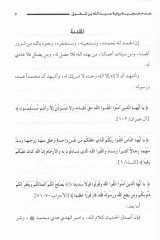 المقدمة
إن الحمد لله نحمده، ونستعينه، ونستغفره، ونعوذ بالله من شرور
أنفسنا، ومن سيئات أعمالنا، من يهده الله فلا مضل له، ومن يضلل فلا هادي
له.
وأشهد أن لا إله إلا الله وحده لا شريك له، وأشهد أن محمداً عبده
ورسوله.
﴿يا أيها الذين آمنوا اتقوا الله حق تقاته ولا تموتن إلا وأنتم مسلمون﴾
[آل عمران: ١٠٢].
﴿يا أيها الناس اتقوا ربكم الذي خلقكم من نفس واحدة وخلق منها زوجها وبث
منهما رجالاً كثيراً ونساء واتقوا الله الذي تساءلون به والأرحام إن الله كان عليكم
رقيباً﴾
﴿يا أيها الذين آمنوا اتقوا الله وقولوا قولاً سديداً يصلح لكم أعمالكم ويغفر لكم
ذنوبكم ومن يطع الله ورسوله فقد فاز فوزاً عظيماً﴾
أما بعد:
فإن أصدق الحديث كلام الله، وخير الهدي هدي محمد ﷺ، وشر